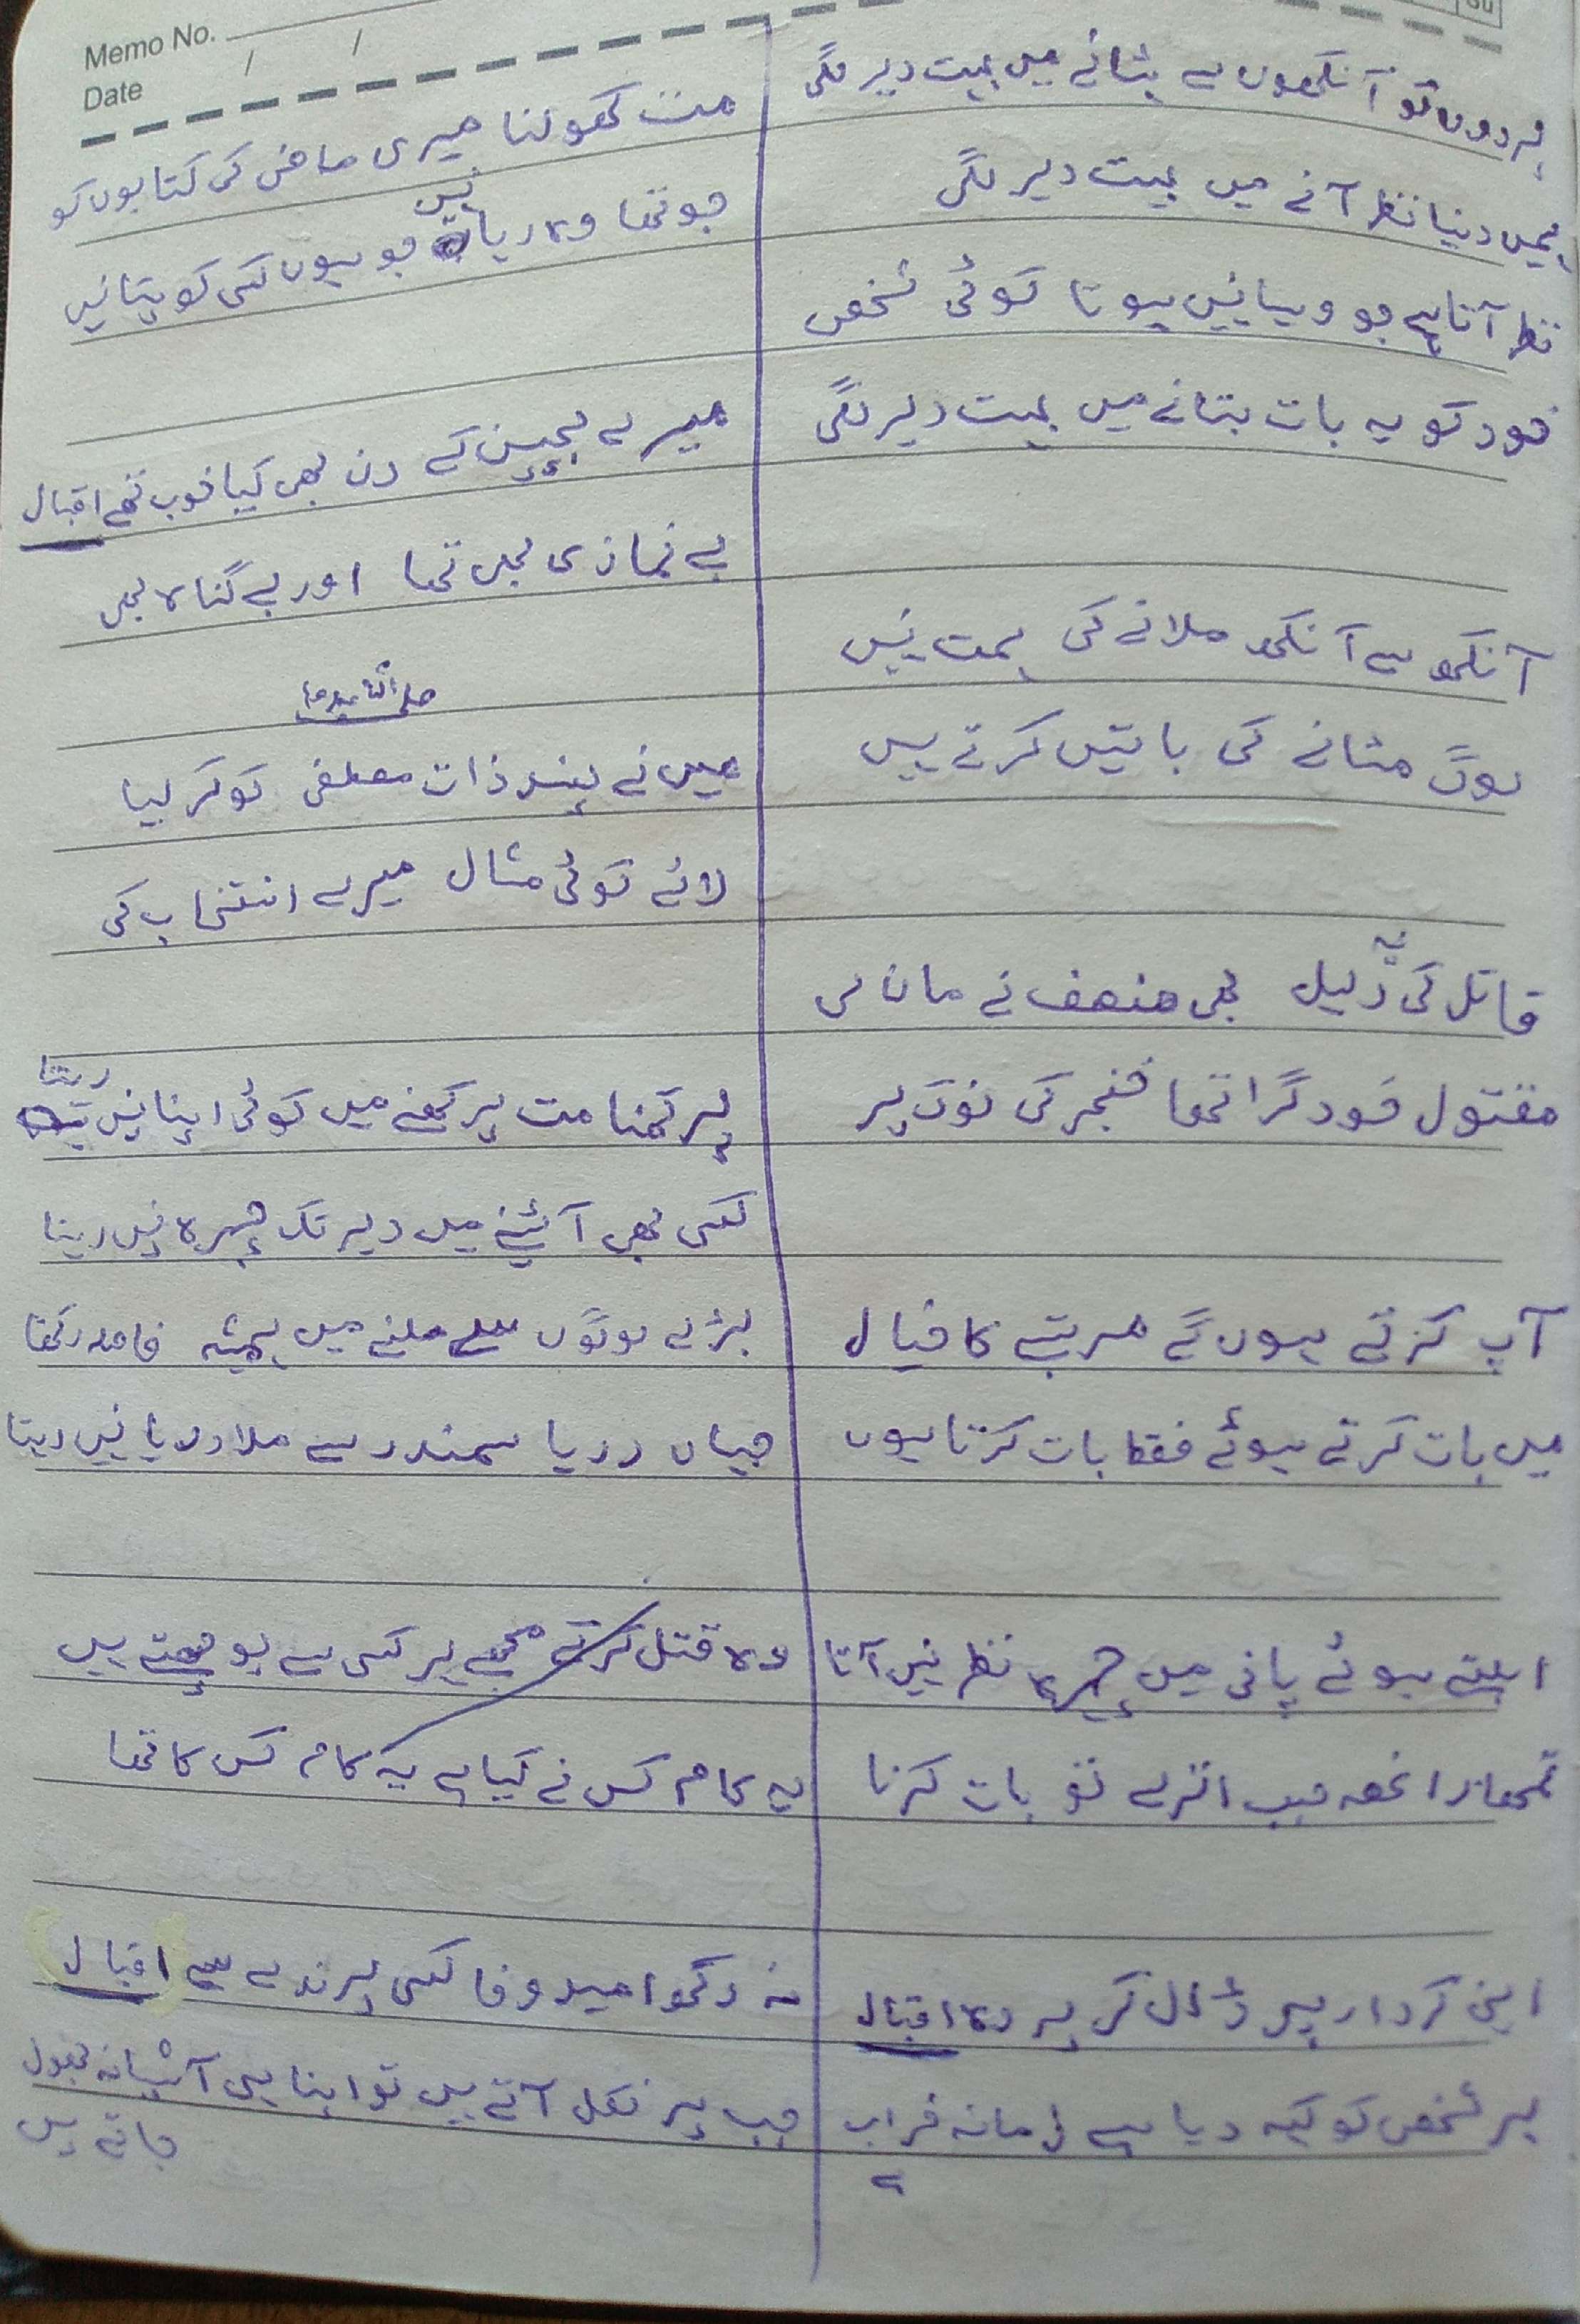 Memo No.
Date / /
پردوں کو آنکھوں سے ہٹانے میں بہت دیر لگی
ہمیں دنیا نظر آنے میں بہت دیر لگی
نظر آتا ہے جو ویسا نہیں ہوتا کوئی شخص
خود کو یہ بات بتانے میں بہت دیر لگی
آنکھ سے آنکھ ملانے کی ہمت نہیں
لوگ مٹانے کی باتیں کرتے ہیں
قاتل کی یہ دلیل بھی منصف نے مان لی
مقتول خود گرا تھا خنجر کی نوک پر
آپ کرتے ہوں گے مرتبے کا خیال
میں بات کرتے ہوئے فقط بات کرتا ہوں
ابلتے ہوئے پانی میں چہرہ نظر نہیں آتا
تمھارا غصہ جب اترے تو بات کرنا
اپنی کردار پر ڈال کر پردہ اقبال
ہر شخص کو کہہ دیا ہے زمانہ خراب ہے
مت کھولنا میری ماضی کی کتابوں کو
جو تھا وہ رہا نہیں جو ہوں کسی کو پتا نہیں
میرے بچپن کے دن بھی کیا خوب تھے اقبال
بے نمازی بھی تھا اور بے گناہ بھی
میں نے پسند ذات مصطفی کو کر لیا
لائے کوئی مثال میرے انتخاب کی
پرکھنا مت پرکھنے میں کوئی اپنا نہیں رہتا
کسی بھی آئینے میں دیر تک چہرہ نہیں رہتا
بڑے لوگوں سے ملنے میں ہمیشہ فاصلہ رکھنا
جہاں دریا سمندر سے ملا دریا نہیں رہتا
وہ قتل کرکے مجھے ہر کسی سے پوچھتے ہیں
یہ کام کس نے کیا ہے یہ کام کس کا تھا
نہ رکھو امید وفا کسی پرندے سے اقبال
جب پر نکل آتے ہیں تو اپنا ہی آشیانہ بھول
جاتے ہیں